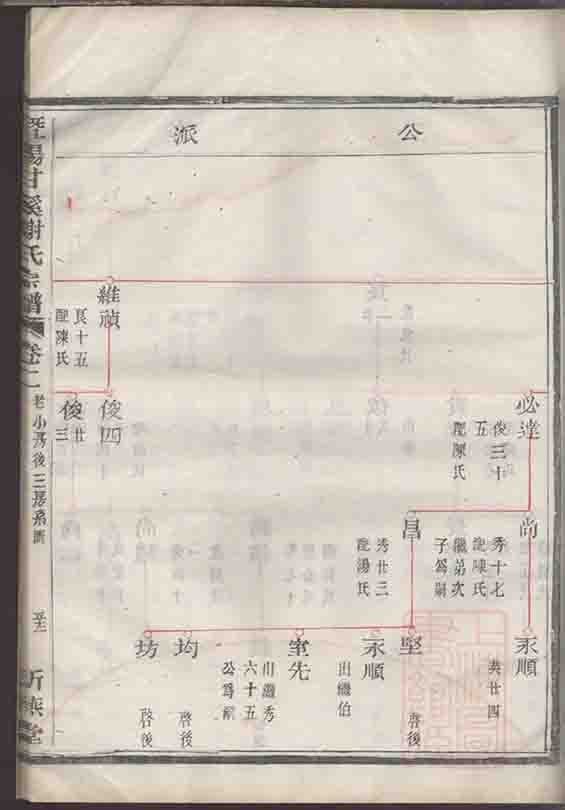 公派
必達
俊三十五
配陳氏
尚
秀十七
配陳氏
繼弟次子爲嗣
永順
共廿四
昌
秀廿三
配湯氏
堅
啓後
永順
出繼伯
室先
出繼秀六十五公爲嗣
均
啓後
坊
啓後
維禎
良十五
配陳氏
俊四
俊廿三
暨陽甘溪謝氏宗譜
卷二
老小房後三房系圖